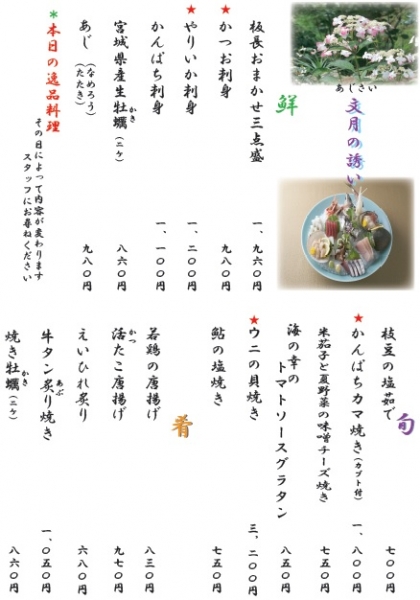 あじさい
文月の誘い
鮮
板長おまかせ三点盛 一、九六〇円
★かつお刺身 九八〇円
★やりいか刺身 一、二〇〇円
かんぱち刺身 一、一〇〇円
宮城県産生牡蠣(二ケ) 八六〇円
かき
あじ(なめろう)(たたき) 九八〇円
＊本日の逸品料理
その日によって内容が変わります
スタッフにお尋ねください
旬
枝豆の塩茹で 七〇〇円
★かんぱちカマ焼き(カブト付) 一、八〇〇円
米茄子と夏野菜の味噌チーズ焼き 七五〇円
海の幸の
トマトソースグラタン 八五〇円
★ウニの貝焼き 三、二〇〇円
鮎の塩焼き 七五〇円
肴
若鶏の唐揚げ 八三〇円
活たこ唐揚げ 九七〇円
かつ
えいひれ炙り 六八〇円
牛タン炙り焼き 一、〇五〇円
あぶ
焼き牡蠣(二ケ) 八六〇円
かき